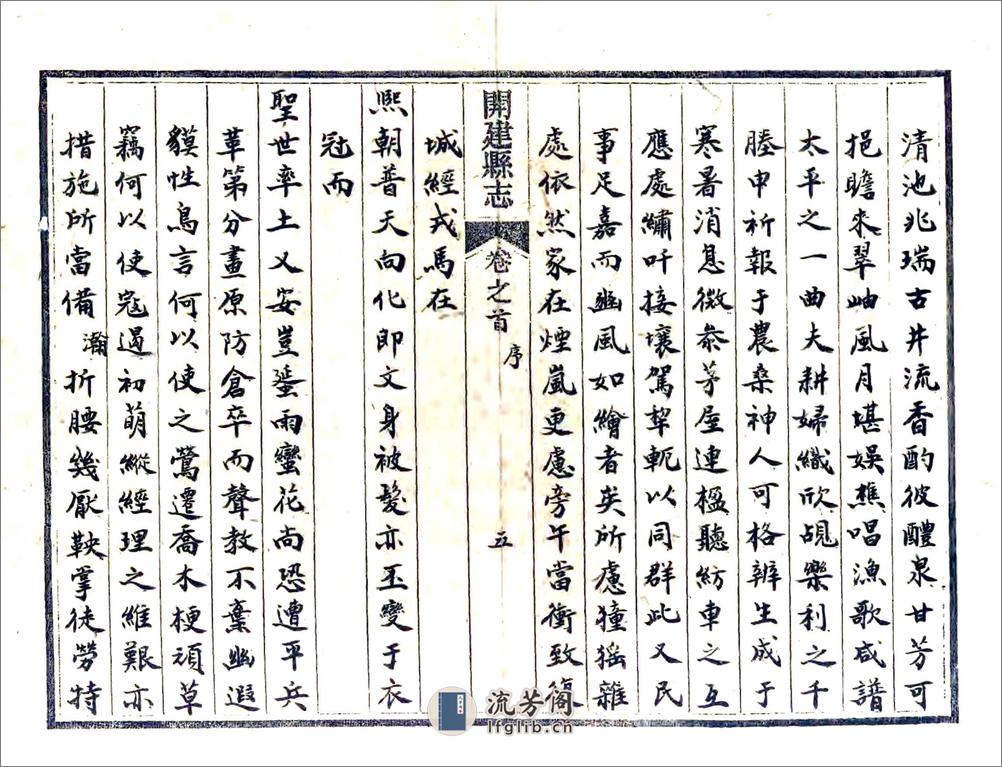 清池兆瑞古井流香酌彼醴泉甘芳可
挹瞻來翠岫風月堪娛樵唱漁歌咸譜
太平之一曲夫耕婦織欣覘樂利之千
塍申祈報于農桑神人可格辨生成于
寒暑消息微叅茅屋連楹聽紡車之互
應處繡吁接壤駕犂軛以同群此又民
事足嘉而豳風如繪者矣所慮獞猺雜
處依然家在煙嵐更慮旁午當衝致復
開建縣志 卷之首 序 五
城經戎馬在
熙朝普天向化即文身被髮亦丕變于衣
冠而
聖世率土又安豈蜑雨蠻花尚恐遭平兵
革第分畫原防倉卒而聲教不棄幽遐
貘性鳥言何以使之鶯遷喬木梗頑草
竊何以使寇遏初萌縱經理之維艱亦
措施所當備瀚折腰幾厭鞅掌徒勞特
流芳阁
lfglib.cn